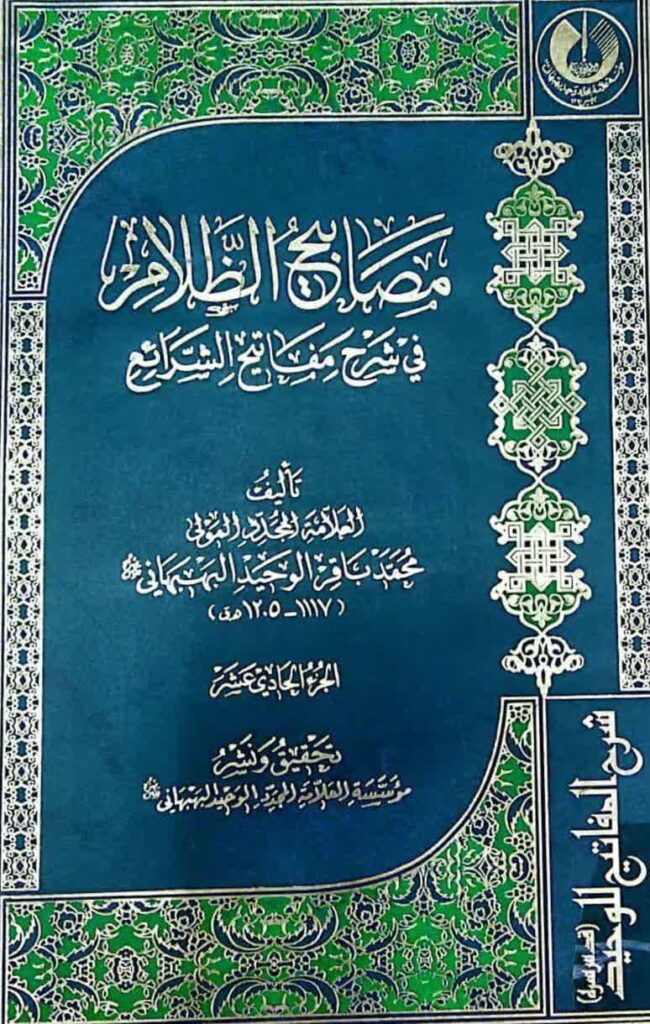 مَصَابيحُ الظَّلَامِ
في شَرحِ مَفَاتيحِ الشَّرائِعِ
تَأليفُ
العَلّامَة المُجَدِّد المَولى
مُحَمَّد بَاقِر الوَحيد البَهبَهاني
(١١١٧ - ١٢٠٥ هـ ق)
الجُزءُ الحَادي عَشَر
تَحقيقُ وَنَشرُ
مُؤَسَّسَة العَلّامَة المُجَدِّد الوَحيد البَهبَهاني
شرح المفاتيح للوحيد